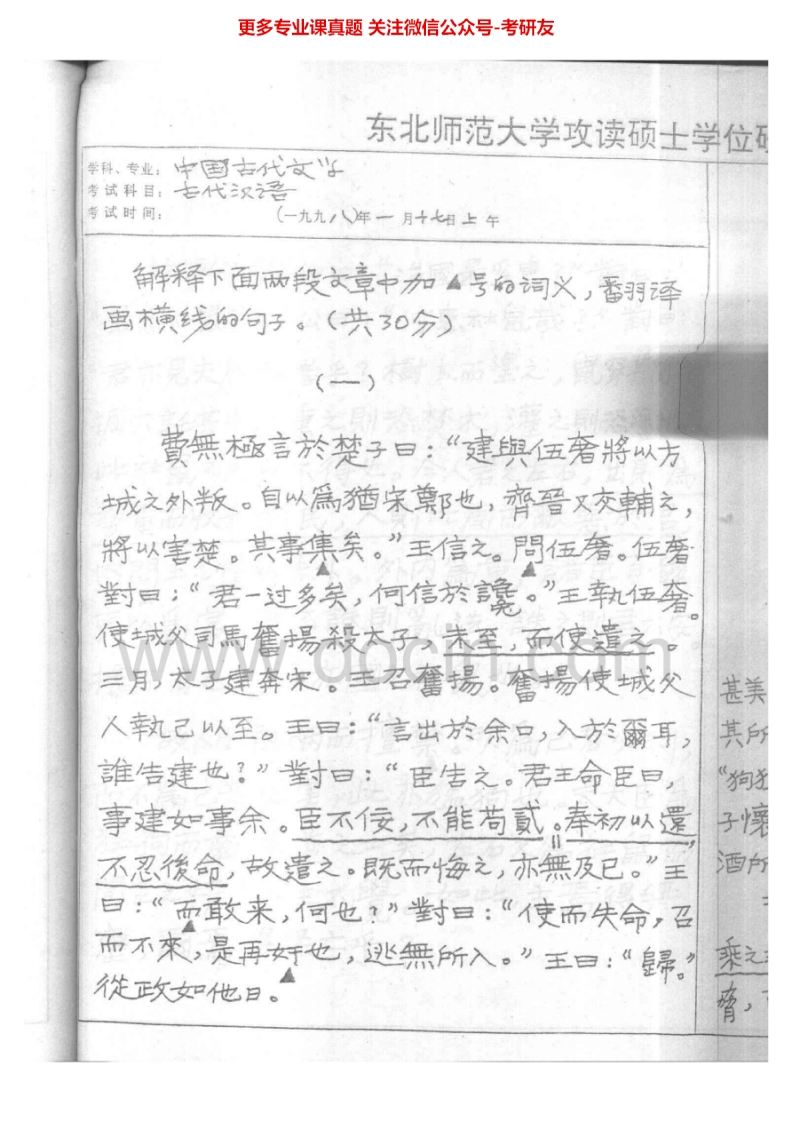 更多专业课真题 关注微信公众号-考研友
东北师范大学攻读硕士学位
学科、专业：中国古代文学
考试科目：古代汉语
考试时间：（一九九八）年一月十七日上午
解释下面两段文章中加▲号的词义，翻译
画横线的句子。（共30分）
（一）
費無極言於楚子曰：“建與伍奢將以方
城之外叛。自以爲猶宋鄭也，齊晉又交輔之，
將以害楚。其事集矣。”王信之。問伍奢。伍奢
對曰：“君一过多矣，何信於讒。”王執伍奢。
使城父司馬奮揚殺太子，未至，而使遣之。
三月，太子建奔宋。王召奮揚。奮揚使城父
人執己以至。王曰：“言出於余口，入於爾耳，
誰告建也？”對曰：“臣告之。君王命臣曰，
事建如事余。臣不佞，不能苟貳。奉初以還，
不忍後命，故遣之。既而悔之，亦無及已。”王
曰：“而敢来，何也？”對曰：“使而失命，召
而不來，是再奸也，逃無所入。”王曰：“歸。”
從政如他日。
甚美
其所
“狗
子懷
酒所
乘之
www.docin.com